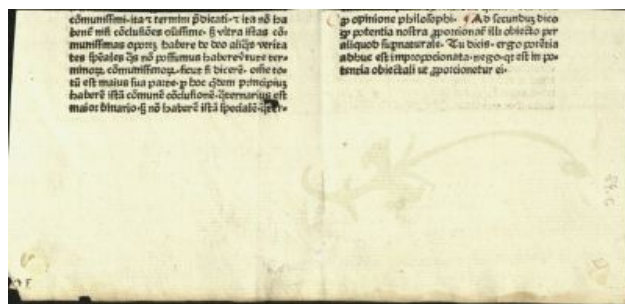 cōmunissimi·ita ⁊ termini p̄dicati·⁊ ita nō ha
berēt nisi cōclusiōes cōissime· ꝫ vltra istas cō
munissimas oportꝫ habere de deo aliq̄s verita
tes sp̄eales q̄s nō possumus habere virtute ter⸗
minoꝝ cōmunissimoꝝ·sicut si dicerē· oīne to⸗
tū est maius sua parte·ꝑ hoc q̄dem principiuꝫ
haberē istā cōmunē cōclusionē·q̄ternarius est
maior binario·ꝫ nō haberē istā specialē·q̄ter⸗
ꝙ opinione philosophi· ¶ Ad secunduꝫ dico
ꝙ potentia nostra ꝓportionat̄ illi obiecto per
aliquod sup̄naturale· Tu dicis·ergo potētia
adhuc est impropocionata·nego·qꝛ est in po⸗
tentia obiectali ut ꝓporcionetur ei·